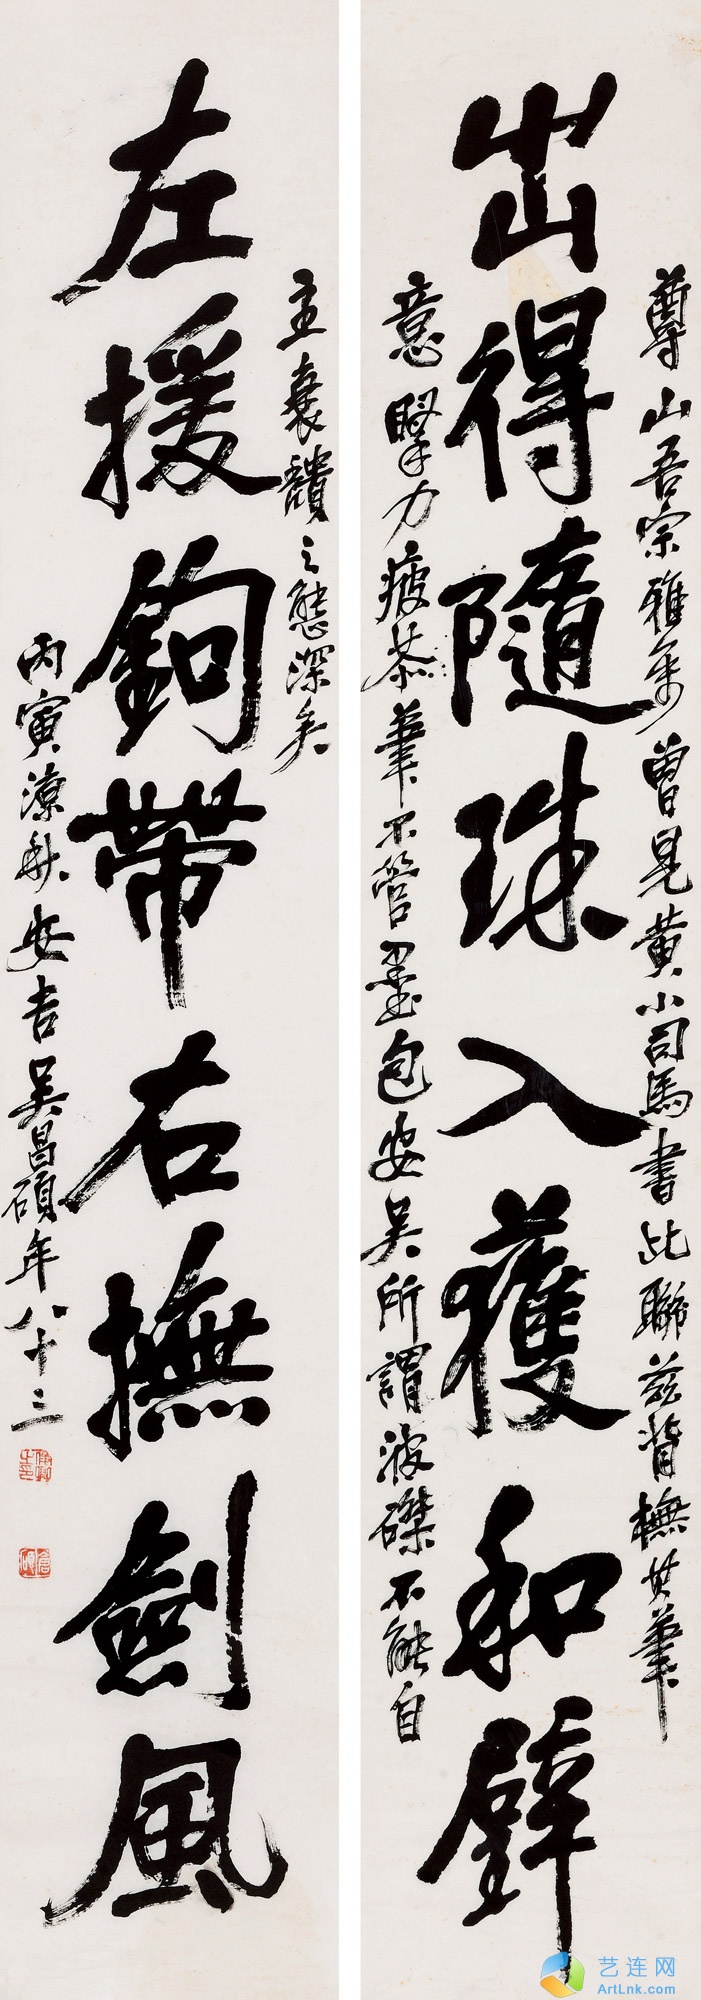 出得隨珠入獲和璧
尊山吾宗雅屬曾見黄小司馬書此聯茲背橅其筆
意擥力疲苶筆不管墨包安吳所謂波磔不能自
左援鉤帶右撫劍風
主衰穨之態深矣
丙寅涼秋安吉吳昌碩年八十三
艺连网
ArtLnk.com